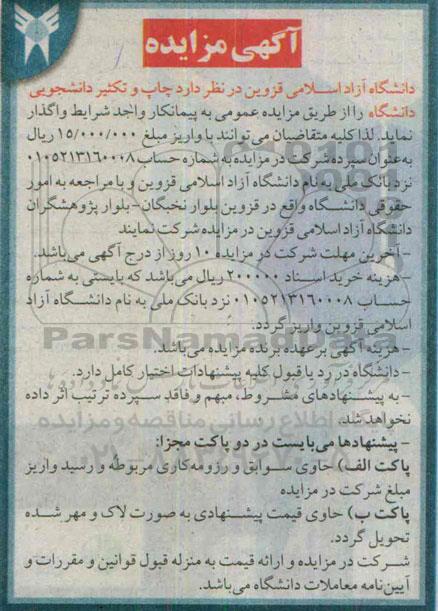 آگهی مزایده
دانشگاه آزاد اسلامی قزوین در نظر دارد چاپ و تکثیر دانشجویی
دانشگاه را از طریق مزایده عمومی به پیمانکار واجد شرایط واگذار
نماید. لذا کلیه متقاضیان می‌توانند با واریز مبلغ ۱۵/۰۰۰/۰۰۰ ریال
به‌عنوان سپرده شرکت در مزایده به شماره حساب ۰۱۰۵۲۱۳۱۶۰۰۰۸
نزد بانک ملی به نام دانشگاه آزاد اسلامی قزوین و با مراجعه به امور
حقوقی دانشگاه واقع در قزوین بلوار نخبگان-بلوار پژوهشگران
دانشگاه آزاد اسلامی قزوین در مزایده شرکت نمایند
- آخرین مهلت شرکت در مزایده ۱۰ روز از درج آگهی می‌باشد.
- هزینه خرید اسناد ۲۰۰۰۰۰۰ ریال می‌باشد که بایستی به شماره
حساب ۰۱۰۵۲۱۳۱۶۰۰۰۸ نزد بانک ملی به نام دانشگاه آزاد
اسلامی قزوین واریز گردد.
ParsNamadData
- هزینه آگهی بر عهده برنده مزایده می‌باشد.
- دانشگاه در رد یا قبول کلیه پیشنهادات اختیار کامل دارد.
- به پیشنهادهای مشروط، مبهم و فاقد سپرده ترتیب اثر داده
نخواهد شد.
پایگاه اطلاع رسانی مناقصه و مزایده
- پیشنهادها می‌بایست در دو پاکت مجزا:
پاکت الف) حاوی سوابق و رزومه‌کاری مربوطه و رسید واریز
مبلغ شرکت در مزایده
پاکت ب) حاوی قیمت پیشنهادی به صورت لاک و مهر شده
تحویل گردد.
شرکت در مزایده و ارائه قیمت به منزله قبول قوانین و مقررات و
آیین‌نامه معاملات دانشگاه می‌باشد.